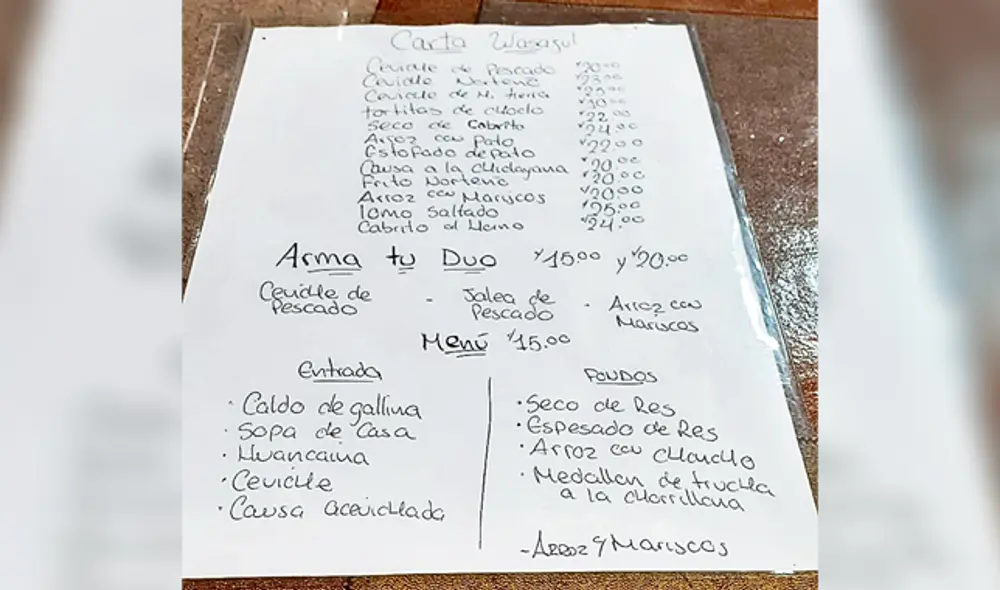 Carta Wasazul
Ceviche de Pescado 20.00
Ceviche Norteño 23.00
Ceviche de M. tierra 25.00
tortitas de choclo 10.00
Seco de Cabrito 22.00
Arroz con Pato 24.00
Estofado de Pato 22.00
Causa a la chiclayana 20.00
Frito Norteño 20.00
Arroz con Mariscos 20.00
lomo Saltado 25.00
Cabrito al Horno 24.00
Arma tu Duo 15.00 y 20.00
Ceviche de Pescado - Jalea de Pescado - Arroz con Mariscos
Menú 15.00
Entrada
· Caldo de gallina
· Sopa de Casa
· Huancaina
· Ceviche
· Causa acevichada
FONDOS
· Seco de Res
· Espesado de Res
· Arroz con chancho
· Medallon de trucha
a la chorrillana
- Arroz y Mariscos